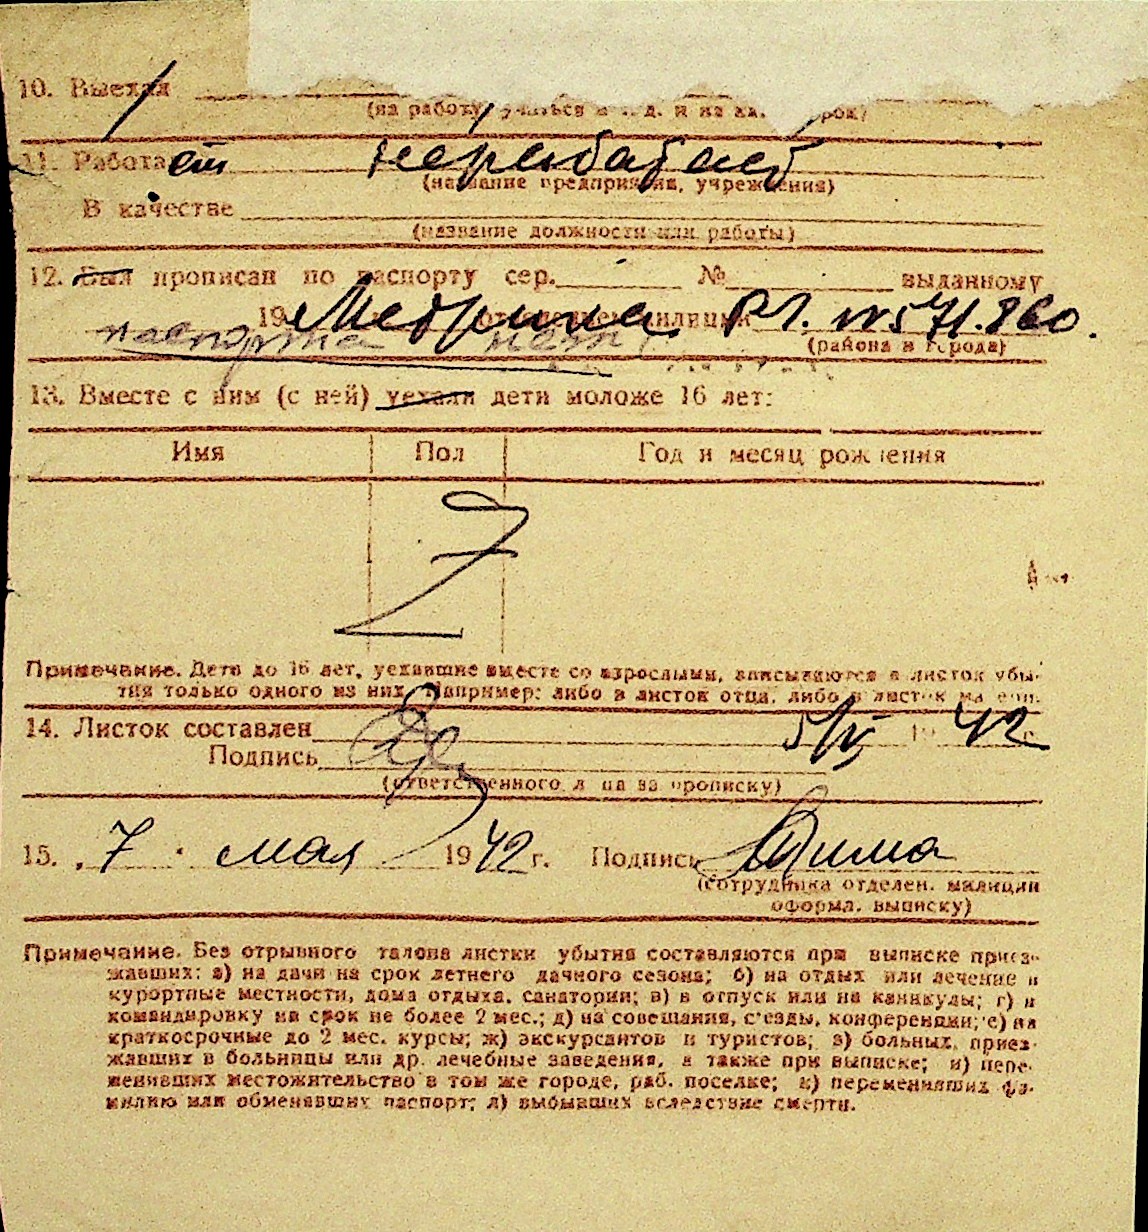 10. Выехал
(на работу, учиться и т. д. и на как. срок)
11. Работает неработает
(название предприятия, учреждения)
В качестве
(название должности или работы)
12. Был прописан по паспорту сер. № выданному
19 Метрика отделением милиции Р1. №571.860.
паспорта нет
(района и города)
13. Вместе с ним (с ней) уехали дети моложе 16 лет:
Имя Пол Год и месяц рождения
Z
Примечание. Дети до 16 лет, уехавшие вместе со взрослыми, вписываются в листок убы-
тия только одного из них. Например: либо в листок отца, либо в листок матери.
14. Листок составлен 5/V 1942 г.
Подпись
(ответственного лица за прописку)
15. „7" мая 1942 г. Подпись
(сотрудника отделен. милиции
оформл. выписку)
Примечание. Без отрывного талона листки убытия составляются при выписке приез-
жавших: а) на дачи на срок летнего дачного сезона; б) на отдых или лечение в
курортные местности, дома отдыха, санатории; в) в отпуск или на каникулы; г) в
командировку на срок не более 2 мес.; д) на совещания, с'езды, конференции; е) на
краткосрочные до 2 мес. курсы; ж) экскурсантов и туристов; з) больных, приез-
жавших в больницы или др. лечебные заведения, а также при выписке; и) пере-
менивших местожительство в том же городе, раб. поселке; к) переменивших фа-
милию или обменявших паспорт; л) выбывших вследствие смерти.